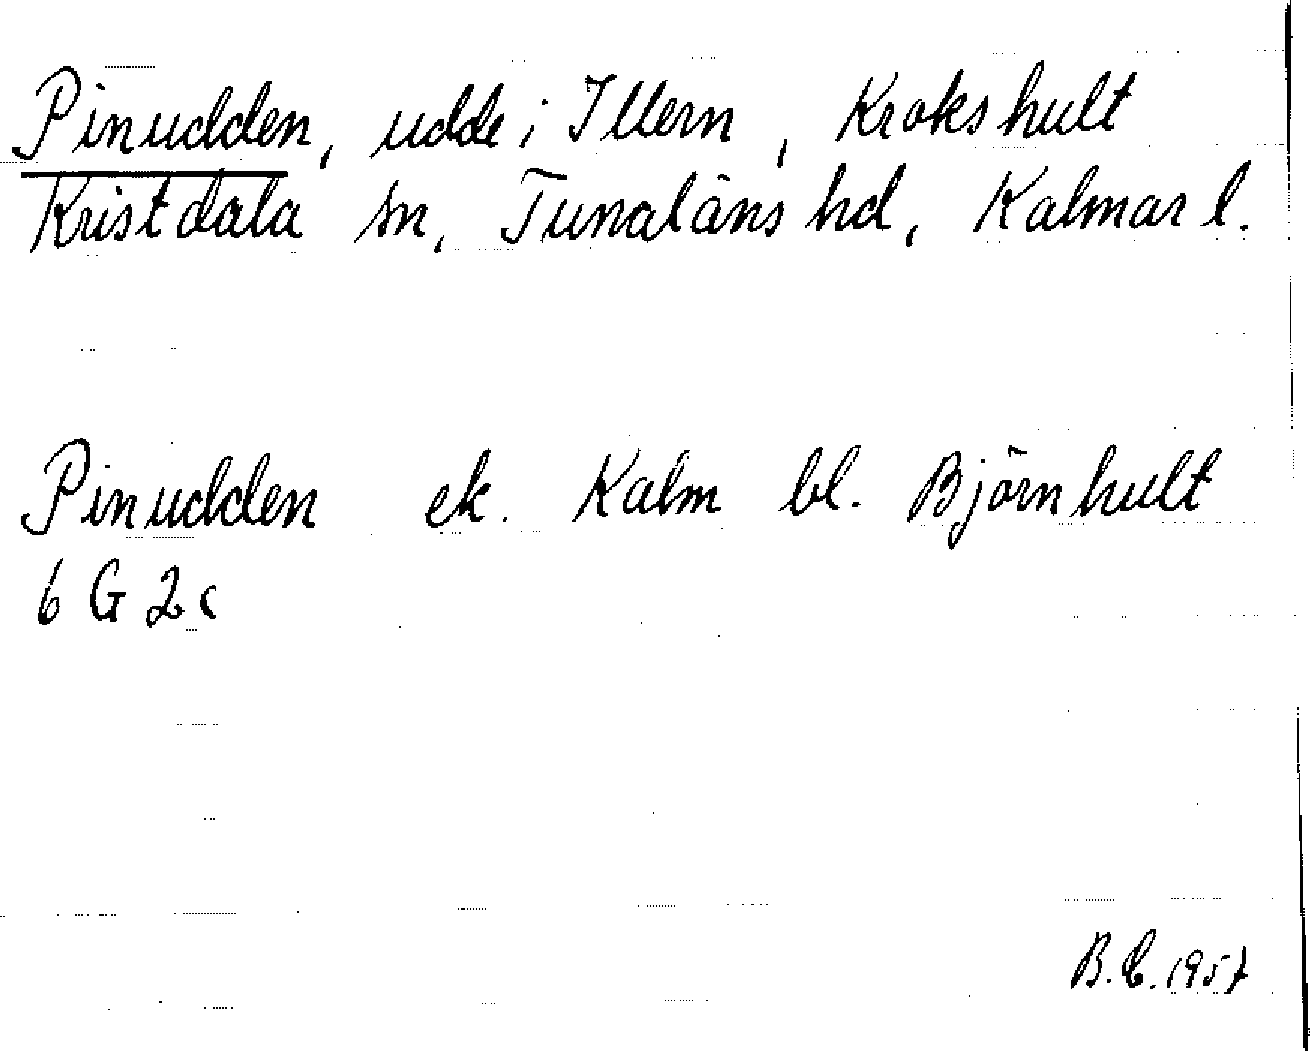 Pinudden, udde i Illern, Krokshult
Kristdala sn, Tunaläns hd, Kalmar l.
Pinudden ek. Kalm bl. Björnhult
6 G 2c
B.C. 1957